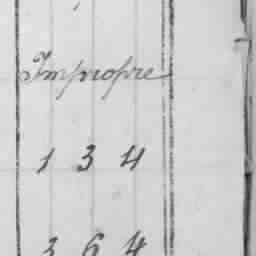 Impropre
1 3 4
3 6 4